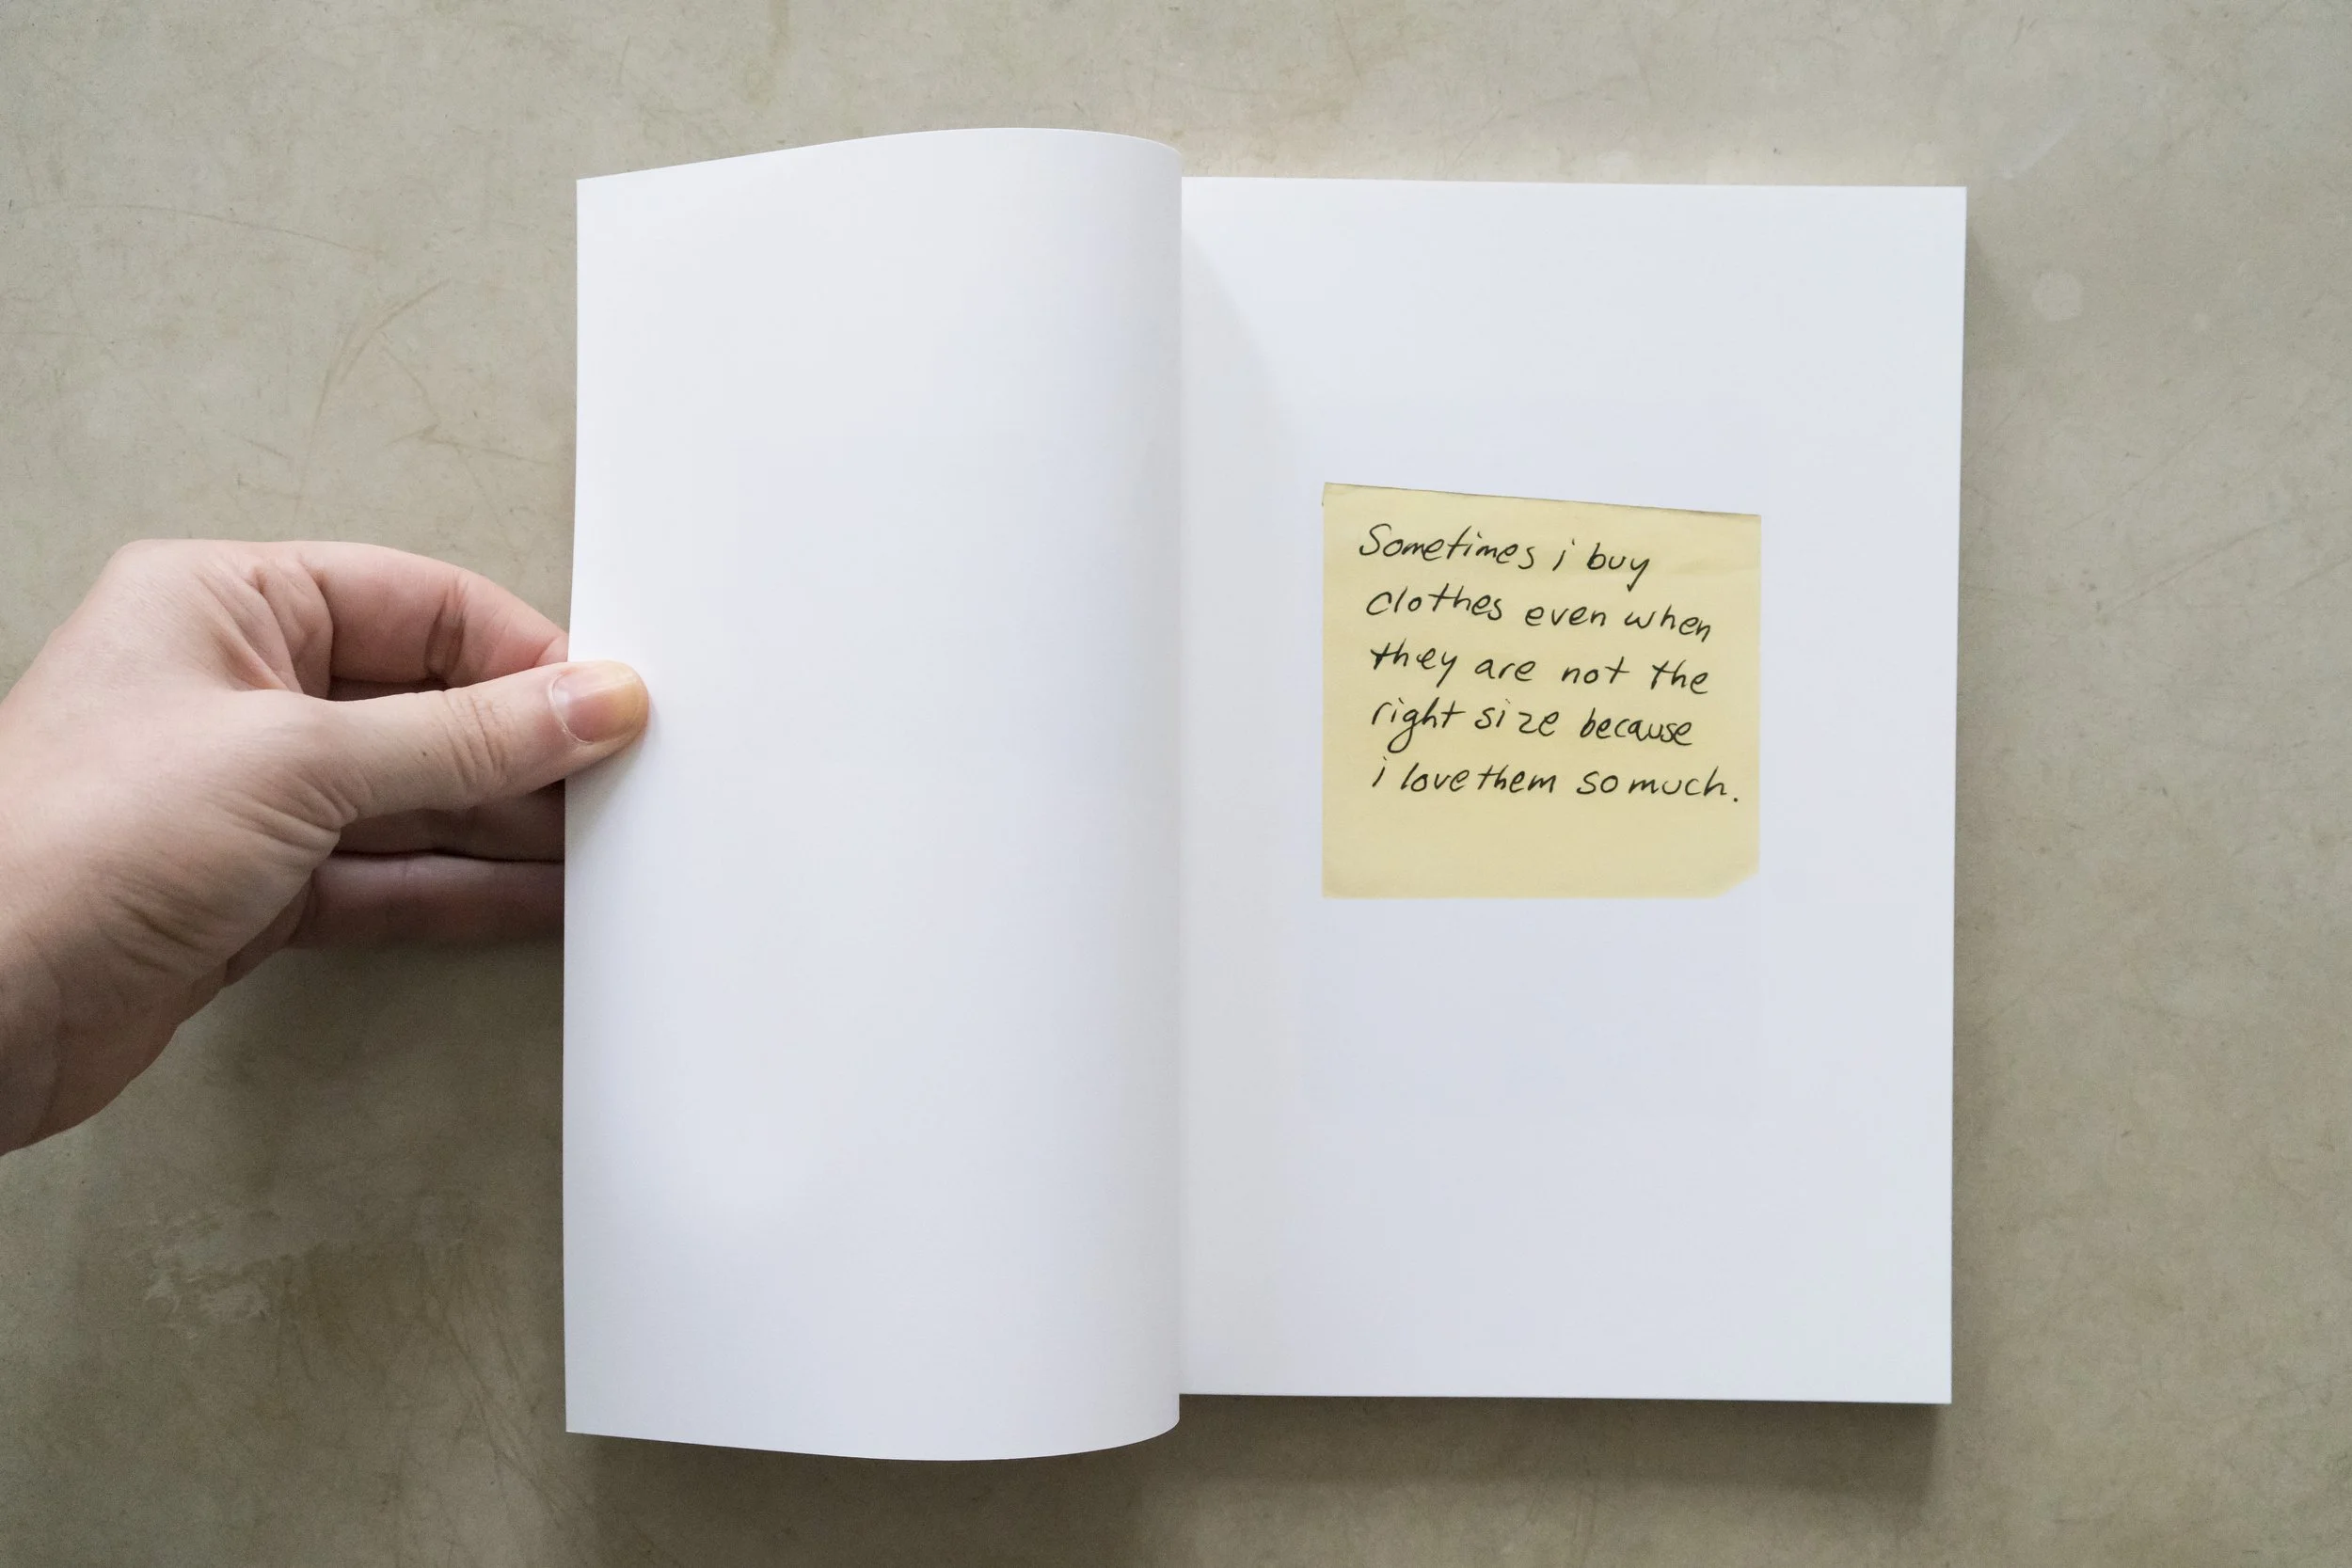 Sometimes i buy
clothes even when
they are not the
right size because
i love them so much.